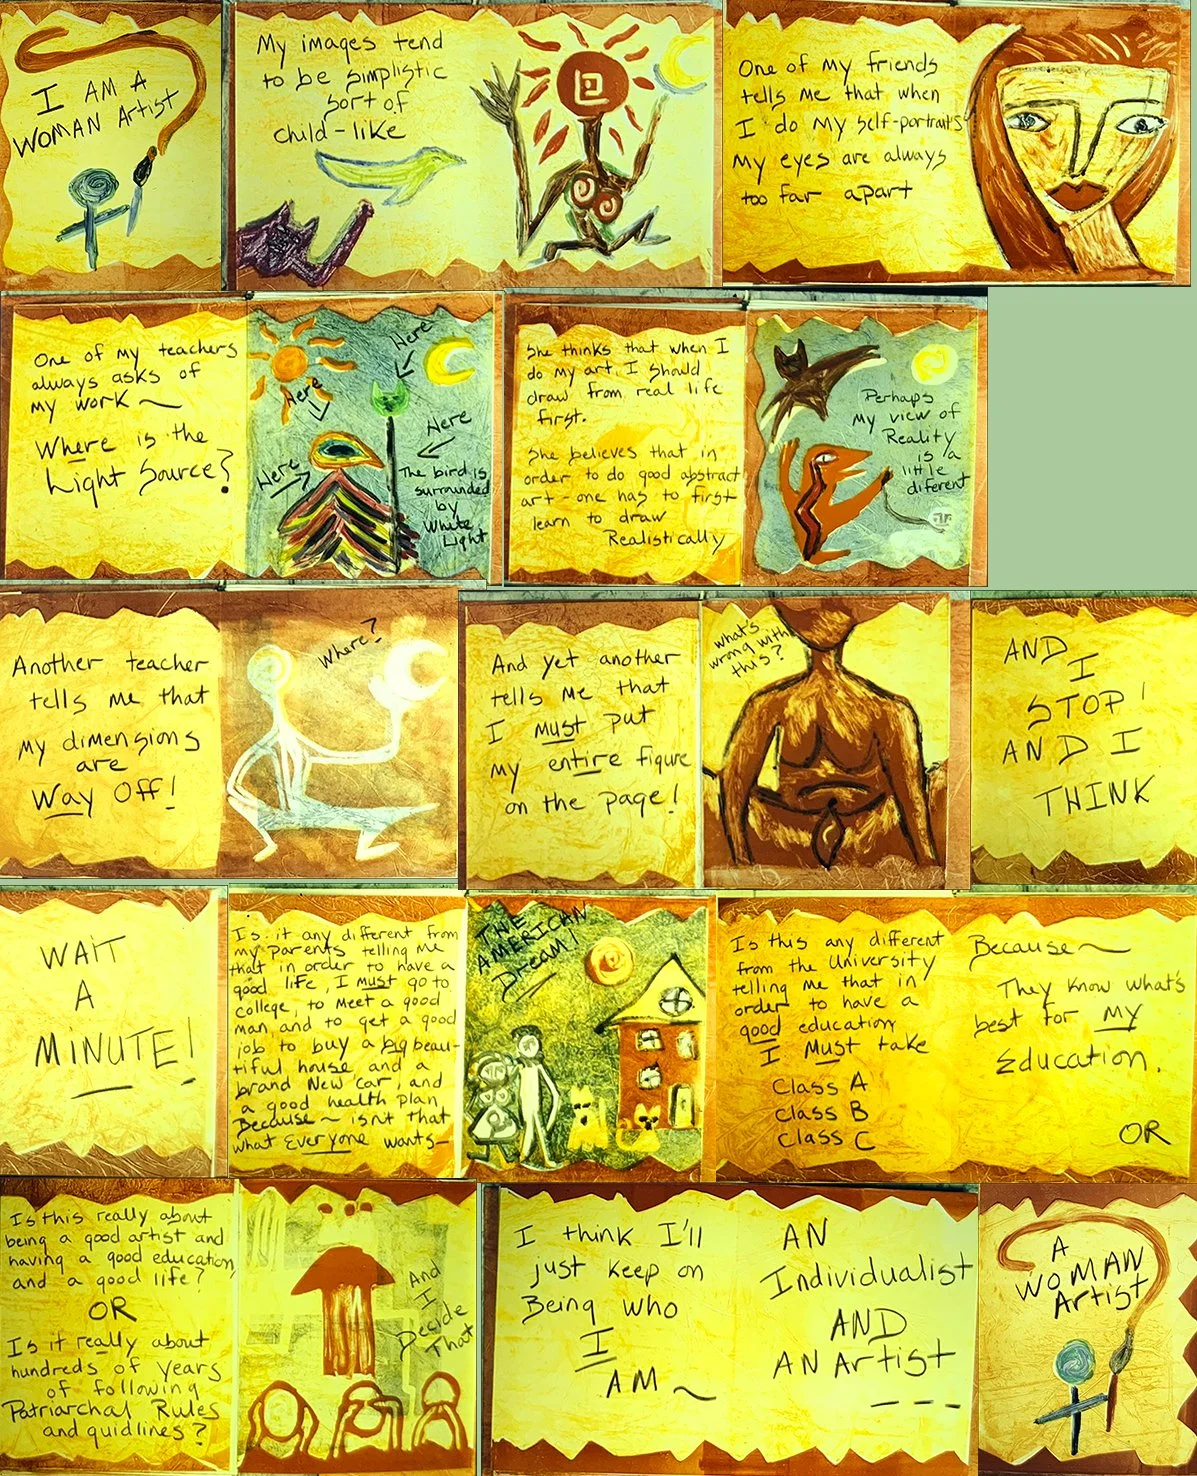 I AM A
WOMAN Artist
My images tend
to be simplistic
sort of
child-like
One of my friends
tells me that when
I do my self-portraits
my eyes are always
too far apart
One of my teachers
always asks of
my work ~
Where is the
Light Source?
Here
Here
Here
Here
The bird is
surrounded
by
White
Light
She thinks that when I
do my art, I should
draw from real life
first.
She believes that in
order to do good abstract
art - one has to first
learn to draw
Realistically
Perhaps
my view of
Reality
is a
little
diferent
Another teacher
tells me that
my dimensions
are
Way Off!
Where?
And yet another
tells me that
I must put
my entire figure
on the page!
what's
wrong with
this?
AND
I
STOP!
AND I
THINK
WAIT
A
MINUTE!
Is it any different from
my parents telling me
that in order to have a
good life, I must go to
college, to meet a good
man, and to get a good
job to buy a big beau-
tiful house and a
brand New car, and
a good health plan
Because ~ isn't that
what Everyone wants-
THE
AMERICAN
Dream!
Is this any different
from the University
telling me that in
order to have a
good education
I Must take
Class A
Class B
Class C
Because ~
They know what's
best for my
Education.
OR
Is this really about
being a good artist and
having a good education,
and a good life?
OR
Is it really about
hundreds of years
of following
Patriarchal Rules
and quidlines?
And
I
Decide
That
I think I'll
just keep on
Being who
I
AM ~
AN
Individualist
AND
AN Artist
A
WOMAN
Artist